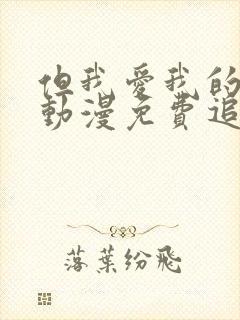 但我愛我的
動漫免費追
落葉紛飛